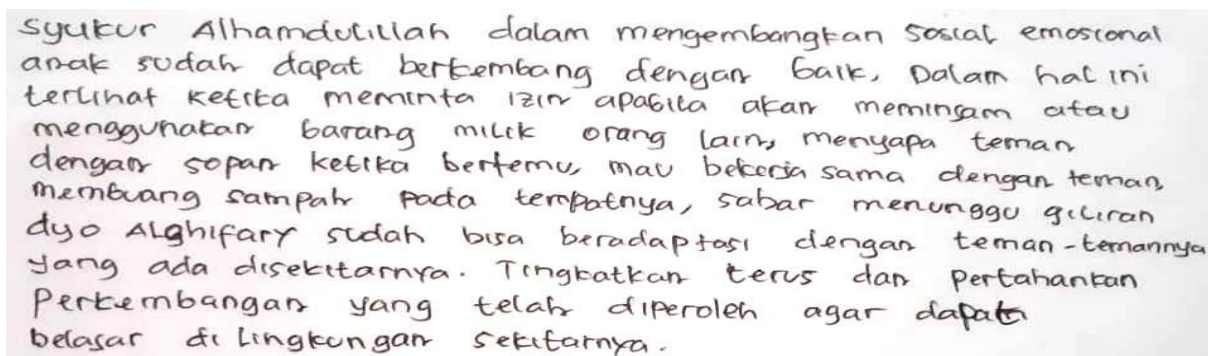 Syukur Alhamdulillah dalam mengembangkan sosial emosional
anak sudah dapat berkembang dengan baik, Dalam hal ini
terlihat ketika meminta izin apabila akan meminjam atau
menggunakan barang milik orang lain, menyapa teman
dengan sopan ketika bertemu, mau bekerja sama dengan teman,
membuang sampah pada tempatnya, sabar menunggu giliran
dyo Alghifary sudah bisa beradaptasi dengan teman-temannya
yang ada disekitarnya. Tingkatkan terus dan pertahankan
Perkembangan yang telah diperoleh agar dapat
belajar di Lingkungan sekitarnya.